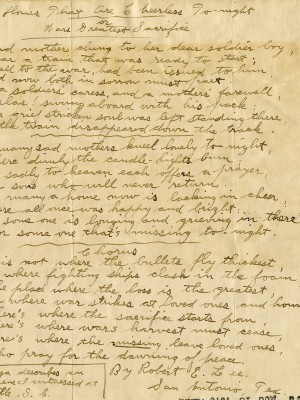 Homes That Are Cheerless To-night
or
Wars Greatest Sacrifice
mother clung to her dear soldier boy,
a train that was ready to start;
to the war, had been issued to him
now both in sorrow must part
soldiers' caress, and a mothers' farewell
alas! swung aboard with his pack.
grief stricken soul was left standing there
the train disappeared down the track.
many sad mothers kneel lonely to night,
dimly the candle-lights burn
sadly to heaven each offers a prayer,
sons who will never return
many a home now is lacking in cheer,
all once was happy and bright;
some one is longing and grieving in there
some one that's missing to night.
Chorus
is not where the bullets fly thickest,
where fighting ships clash in the foam
place where the loss is the greatest
where war strikes at loved ones and home
where the sacrifice starts from
where's where wars' harvest must cease
where the missing leave loved ones,
who pray for the dawning of peace
describes in
I witnessed at
S. C.
By Robert E. Lee.
San Antonio Tex